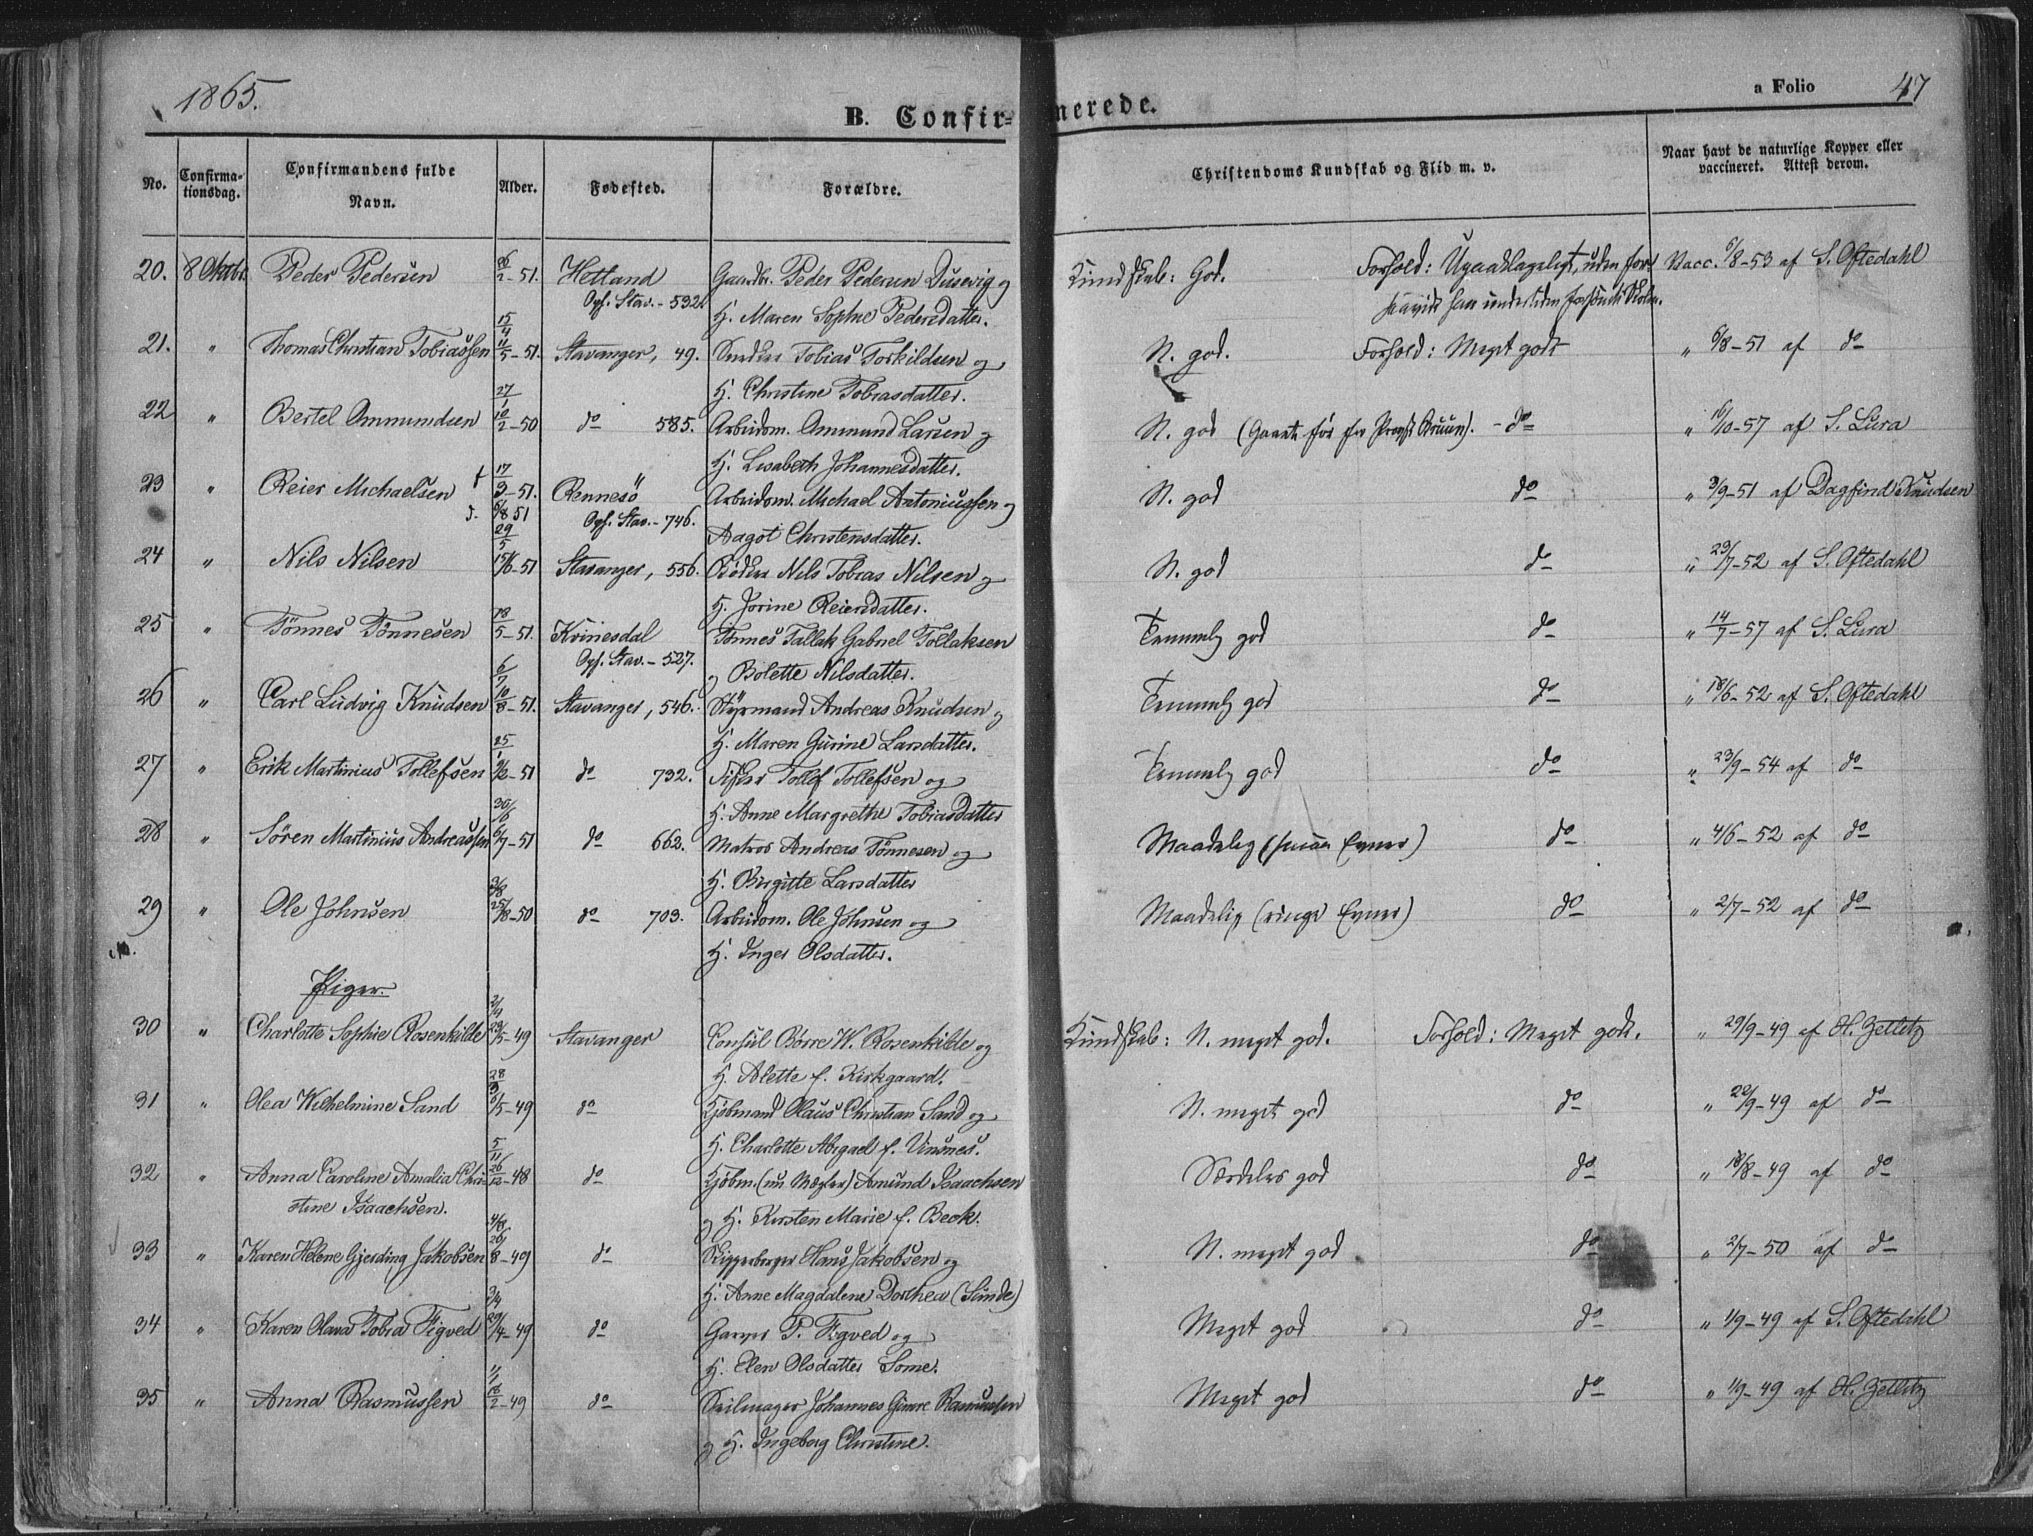 1865.
B. Confirmerede.
a Folio 47
No. Confirmationsdag. Confirmandens fulde Navn. Alder. Fødested. Forældre. Christendoms Kundskab og Flid m. v. Naar havt de naturlige Kopper eller vaccineret. Attest derom.
20. 8 Oktbr. Peder Pedersen 2-51. Hetland Gaardbr. Peder Pedersen Dusevig og Kundskab: God. Forhold: Upaaklageligt, uden for- Vacc. 5/8-53 af S. Oftedahl
Opf. Stav.-532. H. Maren Sophie Pedersdatter. saavidt han undertiden forsømte Skolen.
21. " Thomas Christian Tobiassen 15/4 11/5-51. Stavanger, 49. Snedker Tobias Torkildsen og N. god. Forhold: Meget godt " 6/8-51 af do
H. Christine Tobiasdatter.
22 " Bertel Ommundsen 27/1 10/2-50 do 585. Arbeidsm. Ommund Larsen og N. god do " 16/10-57 af S. Lura
H. Lisabeth Johannesdatter.
23 " Reier Michaelsen f 17/3-51. Rennesö Arbeidsm. Michael Antoniussen og N. god do " 3/9-51 af Dagfind Knudsen
d. 6/8 51 Opf. Stav.-746. Aagot Christensdatter.
24 " Nils Nilsen 29/5 15/6-51 Stavanger, 556. Bødker Nils Tobias Nilsen og N. god do " 23/7-52 af S. Oftedahl
H. Jorine Reiersdatter.
25 " Tönnes Tönnesen 18/5-51. Kvinesdal Tönnes Tallak Gabriel Tollaksen Temmelig god do " 14/7-57 af S. Lura
Opf. Stav.-527. og Bolette Nilsdatter.
26 " Carl Ludvig Knudsen 6/7 10/8-51. Stavanger, 546. Styrmand Andreas Knudsen og Temmelig god do " 18/6-52 af S. Oftedahl
H. Maren Gurine Larsdatter.
27 " Erik Martinius Tollefsen 25/1 9/2-51 do 732. Fisker Tollef Tollefsen og Temmelig god do " 23/9-54 af do
H. Anne Margrethe Tobiasdatter
28 " Sören Martinius Andreassen 30/6 6/7-51 do 662. Matros Andreas Tönnesen og Maadelig (smaa Evner) do " 4/6-52 af do
H. Birgitte Larsdatter
29 " Ole Johnsen 3/8 25/8-50 do 703. Arbeidsm. Ole Johnsen og Maadelig (ringe Evner) do " 2/7-52 af do
H. Inger Olsdatter.
Piger.
30 " Charlotte Sophie Rosenkilde 2/4 29/5-49 Stavanger Consul Börre W. Rosenkilde og Kundskab: N. meget god. Forhold: Meget godt. " 29/9-49 af H. Zetlitz
H. Alette f. Kirkgaard.
31 " Olea Wilhelmine Sand 28/3 /5-49 do Kjöbmand Olaus Christian Sand og N. meget god do " 22/9-49 af do
H. Charlotte Abigael f. Vinsnes.
32 " Anna Caroline Amalia Chri- 5/11 26/12-48 do Kjöbm. (nu Mægler) Amund Isaachsen Særdeles god do " 18/8-49 af do
stine Isaachsen. og H. Kirsten Marie f. Beck.
33 " Karen Helene Gjerding Jakobsen 4/8 26/8-49 do Skipperborger Hans Jakobsen og N. meget god do " 2/7-50 af do
H. Anne Magdalene Dorthea (Sunde)
34 " Karen Olava Tobia Figved 3/4 29/4-49 do Garver P. Figved og Meget god do " 1/9-49 af S. Oftedahl
H. Elen Olsdatter Some.
35 " Anna Rasmussen 1/1 18/2-49 do Seilmager Johannes Gimre Rasmussen Meget god do " 1/9-49 af H. Zetlitz
og H. Ingeborg Christine.